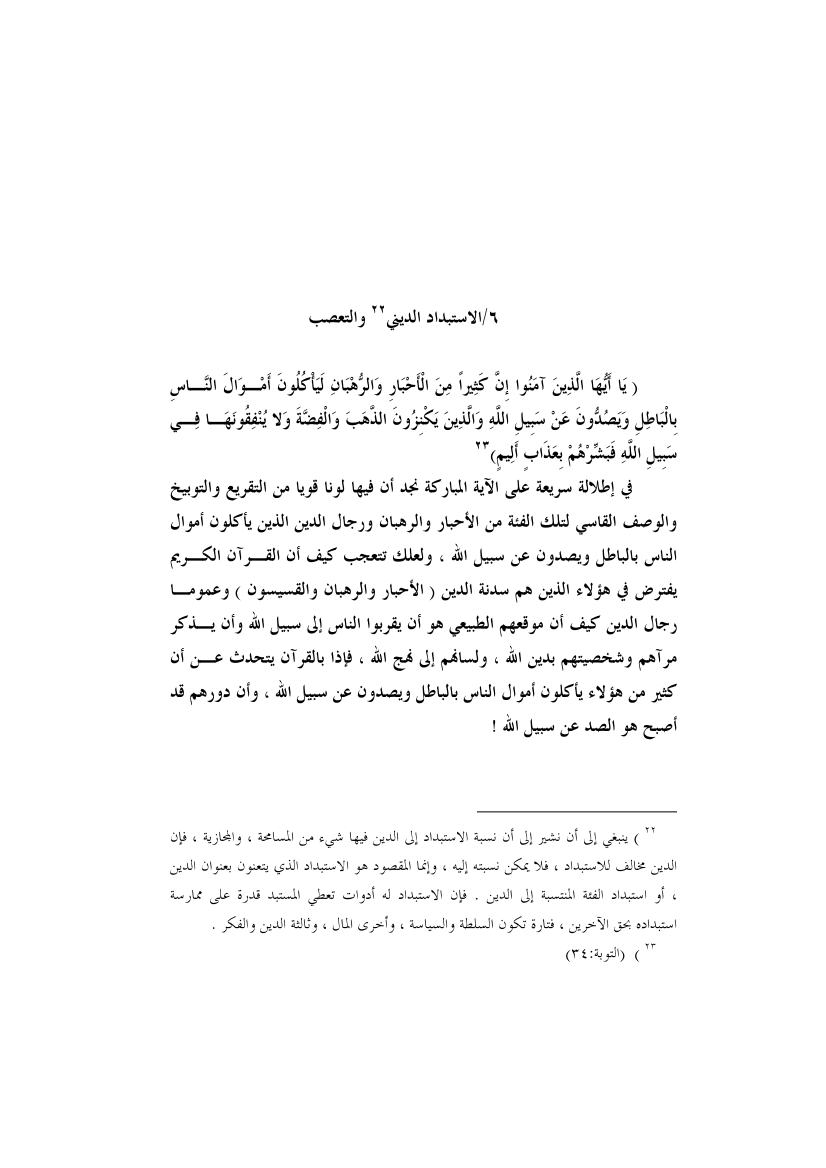 ٦/الاستبداد الديني٢٢ والتعصب
( يَا أَيُّهَا الَّذِينَ آمَنُوا إِنَّ كَثِيراً مِنَ الْأَحْبَارِ وَالرُّهْبَانِ لَيَأْكُلُونَ أَمْـــوَالَ النَّـــاسِ
بِالْبَاطِلِ وَيَصُدُّونَ عَنْ سَبِيلِ اللَّهِ وَالَّذِينَ يَكْنِزُونَ الذَّهَبَ وَالْفِضَّةَ وَلا يُنْفِقُونَهَـــا فِـــي
سَبِيلِ اللَّهِ فَبَشِّرْهُمْ بِعَذَابٍ أَلِيمٍ)٢٣
في إطلالة سريعة على الآية المباركة نجد أن فيها لونا قويا من التقريع والتوبيخ
والوصف القاسي لتلك الفئة من الأحبار والرهبان ورجال الدين الذين يأكلون أموال
الناس بالباطل ويصدون عن سبيل الله ، ولعلك تتعجب كيف أن القـــرآن الكـــريم
يفترض في هؤلاء الذين هم سدنة الدين ( الأحبار والرهبان والقسيسون ) وعمومـــا
رجال الدين كيف أن موقعهم الطبيعي هو أن يقربوا الناس إلى سبيل الله وأن يـــذكر
مرآهم وشخصيتهم بدين الله ، ولسانهم إلى نهج الله ، فإذا بالقرآن يتحدث عـــن أن
كثير من هؤلاء يأكلون أموال الناس بالباطل ويصدون عن سبيل الله ، وأن دورهم قد
أصبح هو الصد عن سبيل الله !
٢٢ ) ينبغي إلى أن نشير إلى أن نسبة الاستبداد إلى الدين فيها شيء من المسامحة ، والمجازية ، فإن
الدين مخالف للاستبداد ، فلا يمكن نسبته إليه ، وإنما المقصود هو الاستبداد الذي يتعنون بعنوان الدين
، أو استبداد الفئة المنتسبة إلى الدين . فإن الاستبداد له أدوات تعطي المستبد قدرة على ممارسة
استبداده بحق الآخرين ، فتارة تكون السلطة والسياسة ، وأخرى المال ، وثالثة الدين والفكر .
٢٣ ) (التوبة:٣٤)